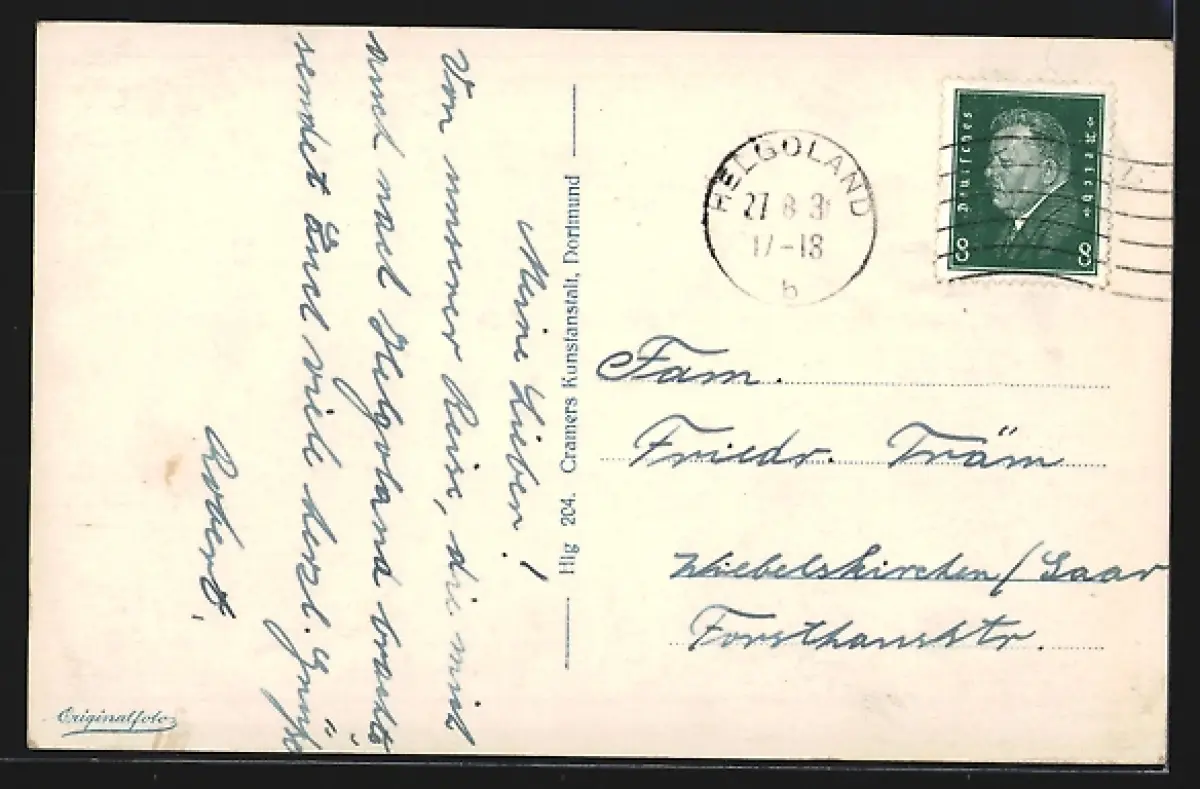 Meine Lieben!
Von unserer Reise, die mich
auch nach Helgoland brachte
sendet Euch viele herzl. Grüße
Robert.
Originalfoto
Hlg 204. Cramers Kunstanstalt, Dortmund
HELGOLAND
27 8 31
17-18
b
Deutsches Reich
8 8
Fam.
Friedr. Träm
Wiebelskirchen/Saar
Forsthausstr.